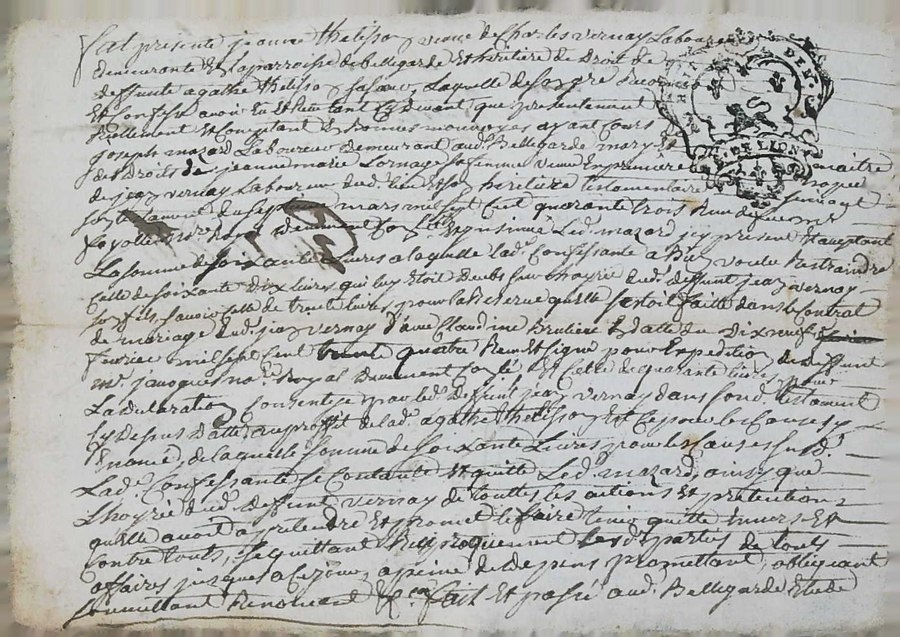 fut présente jeanne thelisson veuve de Charles vernay Laboureur
demeurante En laparroisse de bellegarde Et héritiere de Droit de
deffunte agathe thelisson sa sœur, Laquelle de son gré
Et Confesse avoir Eu Et Receu tant Cy devant que presentement
Réellement Et Comptant En bonnes monnoyes ayant Cours
joseph mazard Laboureur demeurant aud. Bellegarde mary Et maitre
des Droits de jeanne marie Lornage sa femme veuve En premiere noces
de jean vernay Laboureur dud. lieu Et son heritiere testamentaire suivant
son testament du mars mil sept Cent quarante trois Receu
fayolle no.re Royal Deuement Con.llé Et Insinué Led. mazard jcy present Et acceptant
La somme de soixante Livres a laquelle lad. Confessante a Bien voulu Restraindre
Celle de soixante Dix Livres qui luy Etoit deüe sur Lhoyrie dud. deffunt jean vernay
son fils scavoir Celle de trente livres pour la Reserve quelle sestoit faitte dans le Contrat
de mariage dud. jean vernay d'avec Claudine Brutiere En datte du Dix neuf
fevrier mil sept Cent trente quatre Receu Et signé pour Expedition du deffunt
m.e janoques no.re Royal Deuement Con.llé Et Celle de quarante livres pour
La declaration Consentie par led. deffunt jean vernay dans sond. testament
Cy dessus datté au proffit de lad. agathe thelisson Et Ce pour les Causes y
Enoncées, de laquelle somme de soixante Livres pour les Causes susd.
Lad. Confessante se Contante Et quitte Led. mazard, ainsy que
Lhoyrie dud. deffunt vernay de touttes les actions Et pretentions
quelle avoit a pretendre Et promet le faire tenir quitte Envers Et
Contre touts, se quittant Reciproquement Les d. parties de touts
affaires jusques a Ce jour, a peine de Depens promettant, obligeant
soumettant Renonceant &.ca fait Et passé aud. Bellegarde Etude
GEN.
DE LION